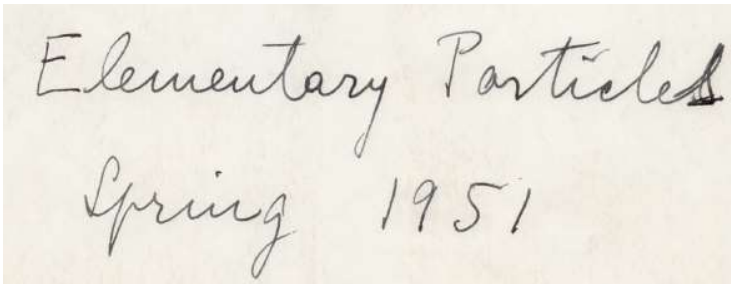 Elementary Particles
Spring 1951